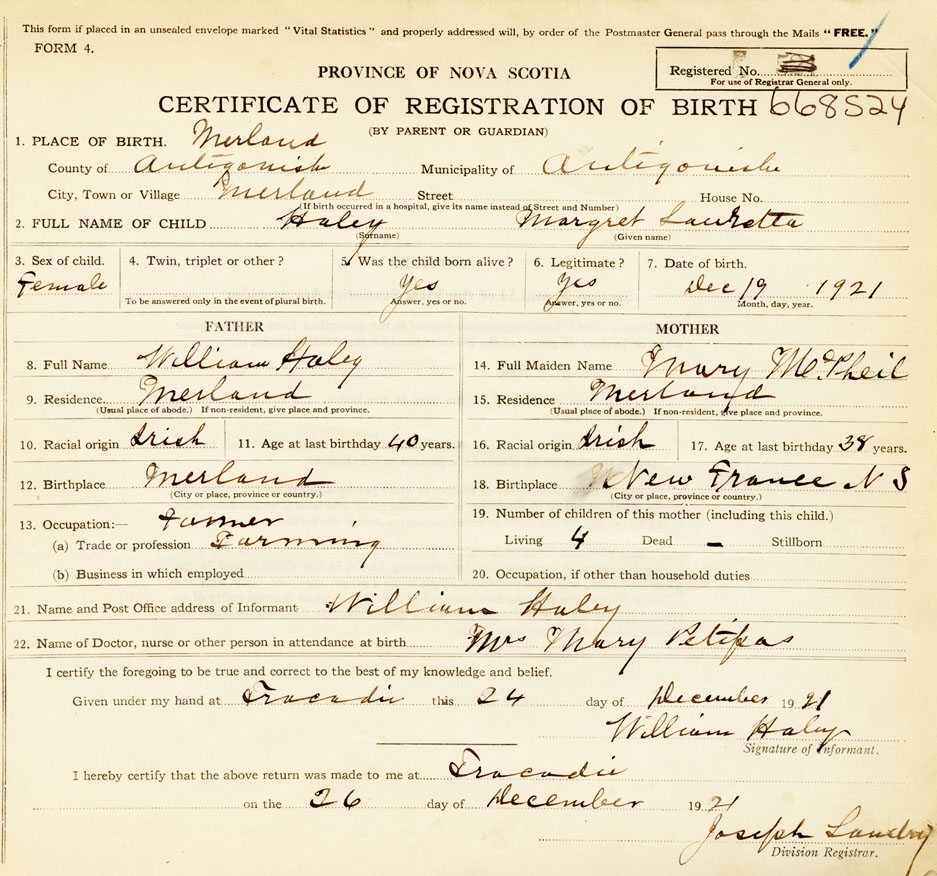 This form if placed in an unsealed envelope marked "Vital Statistics" and properly addressed will, by order of the Postmaster General pass through the Mails "FREE."
FORM 4.
Registered No.
For use of Registrar General only.
PROVINCE OF NOVA SCOTIA
CERTIFICATE OF REGISTRATION OF BIRTH 668524
(BY PARENT OR GUARDIAN)
1. PLACE OF BIRTH. Merland
County of Antigonish Municipality of Antigonish
City, Town or Village Merland Street House No.
(If birth occurred in a hospital, give its name instead of Street and Number)
2. FULL NAME OF CHILD Haley Margret Lauretta
(Surname) (Given name)
3. Sex of child. 4. Twin, triplet or other? 5. Was the child born alive? 6. Legitimate? 7. Date of birth.
Female Yes Yes Dec 19 1921
To be answered only in the event of plural birth. Answer, yes or no. Answer, yes or no. Month, day, year.
FATHER MOTHER
8. Full Name William Haley 14. Full Maiden Name Mary McPheil
9. Residence Merland 15. Residence Merland
(Usual place of abode.) If non-resident, give place and province. (Usual place of abode.) If non-resident, give place and province.
10. Racial origin Irish 11. Age at last birthday 40 years. 16. Racial origin Irish 17. Age at last birthday 38 years.
12. Birthplace Merland 18. Birthplace New France N S
(City or place, province or country.) (City or place, province or country.)
13. Occupation:— Farmer 19. Number of children of this mother (including this child.)
(a) Trade or profession Farming Living 4 Dead – Stillborn
(b) Business in which employed 20. Occupation, if other than household duties
21. Name and Post Office address of Informant William Haley
22. Name of Doctor, nurse or other person in attendance at birth Mrs Mary Petipas
I certify the foregoing to be true and correct to the best of my knowledge and belief.
Given under my hand at Tracadie this 24 day of December 1921
William Haley
Signature of Informant.
I hereby certify that the above return was made to me at Tracadie
on the 26 day of December 1921
Joseph Landry
Division Registrar.